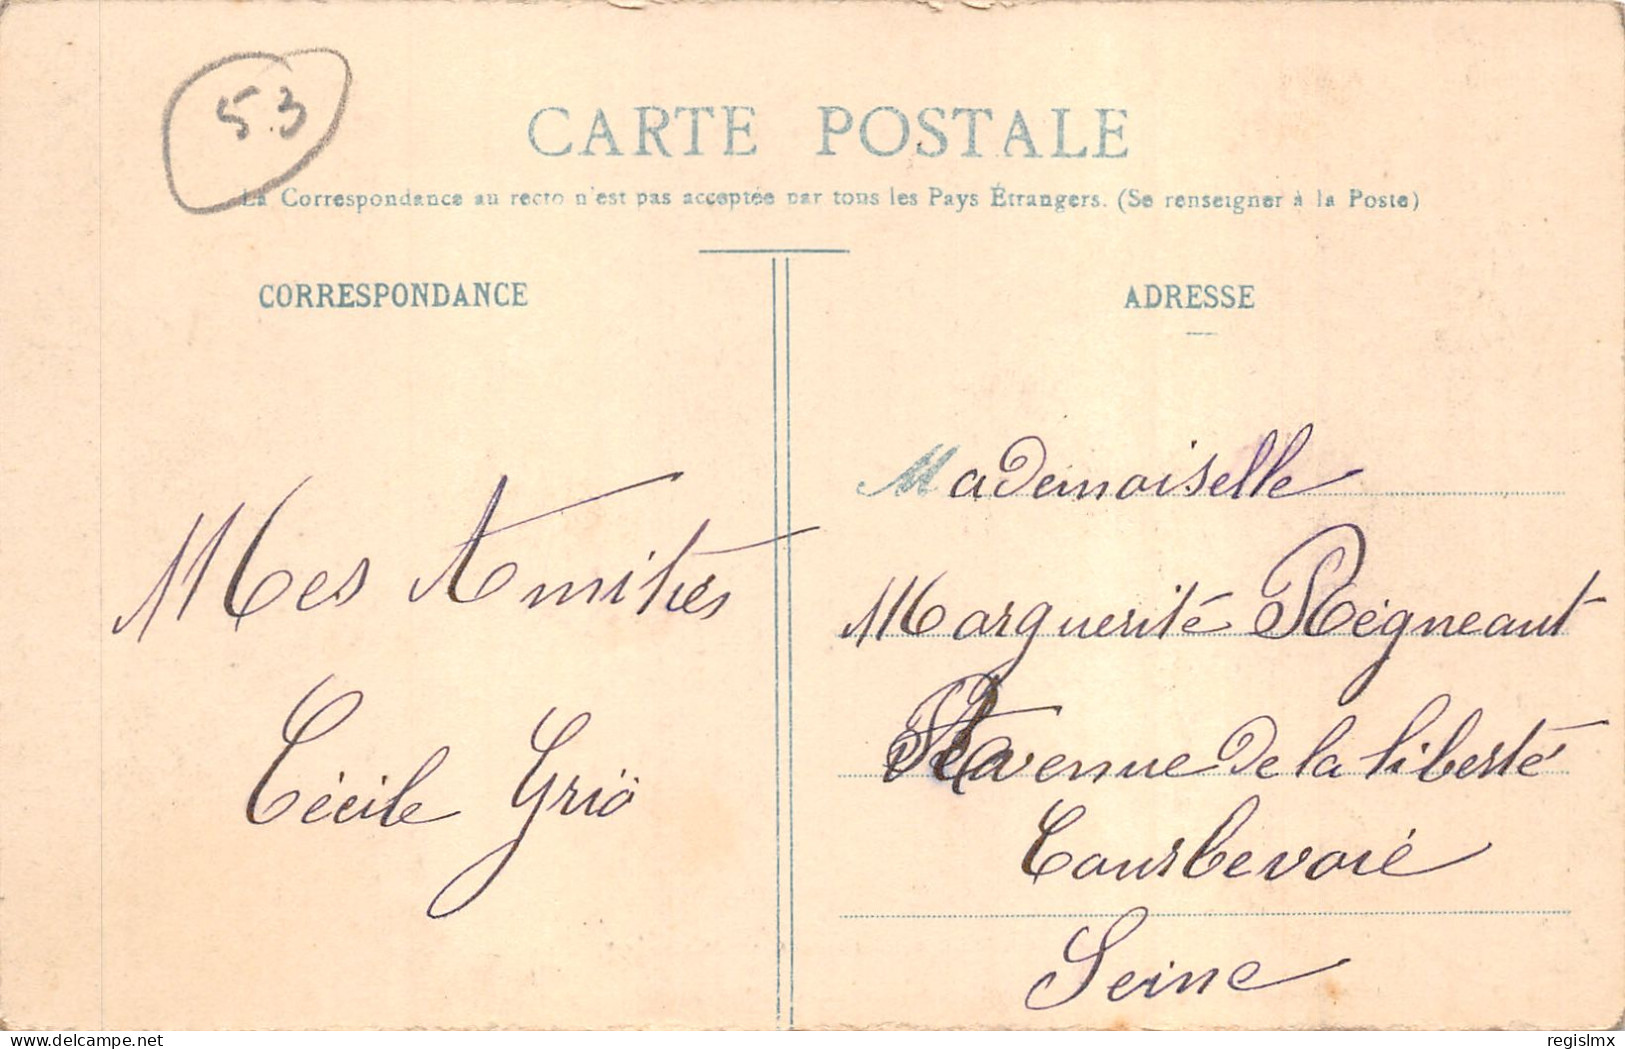 53
CARTE POSTALE
La Correspondance au recto n'est pas acceptée par tous les Pays Étrangers. (Se renseigner à la Poste)
CORRESPONDANCE
ADRESSE
Mes Amitiés
Cécile Griö
Mademoiselle
Marguerité Régneaut
Avenue de la liberté
Courbevoié
Seine
delcampe.net
regislmx